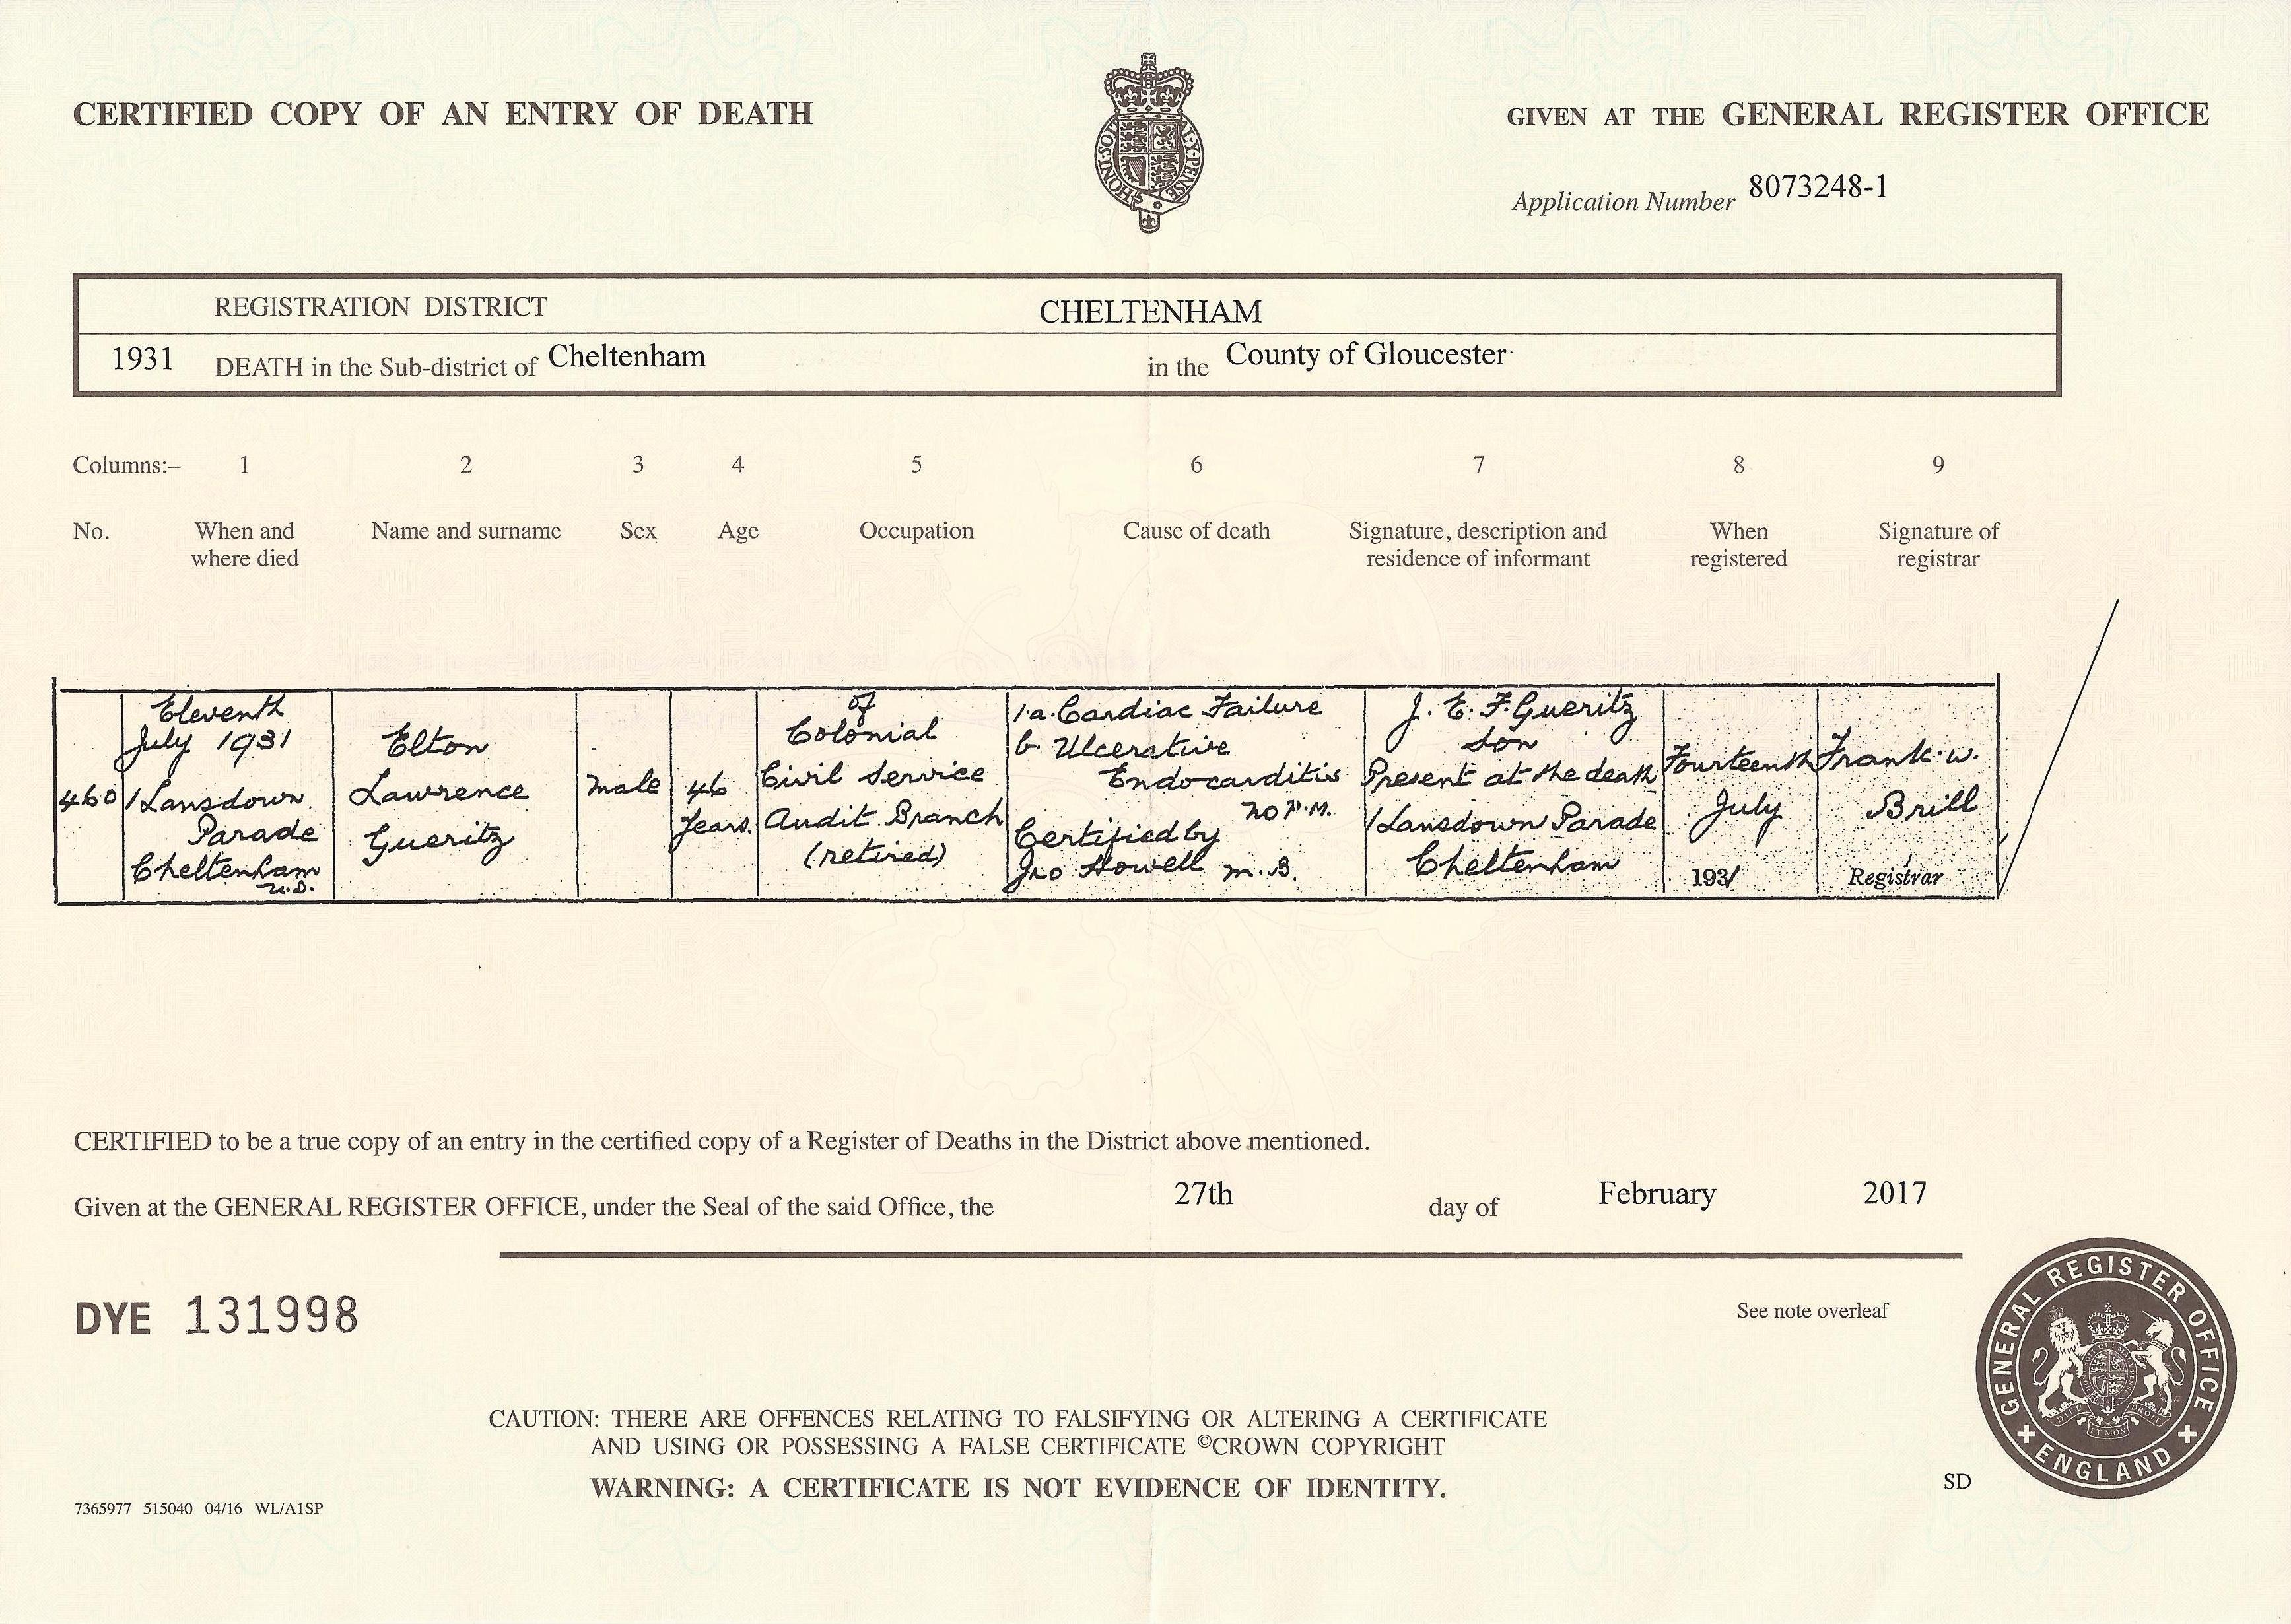 CERTIFIED COPY OF AN ENTRY OF DEATH
HONI·SOIT
Y·PENSE
GIVEN AT THE GENERAL REGISTER OFFICE
Application Number 8073248-1
REGISTRATION DISTRICT CHELTENHAM
1931 DEATH in the Sub-district of Cheltenham in the County of Gloucester
Columns:– 1 2 3 4 5 6 7 8 9
No. When and where died Name and surname Sex Age Occupation Cause of death Signature, description and residence of informant When registered Signature of registrar
460
Eleventh
July 1931
1 Lansdown
Parade
Cheltenham
U.D.
Elton
Lawrence
Gueritz
Male
46
years.
of
Colonial
Civil Service
Audit Branch
(retired)
1.a. Cardiac Failure
b. Ulcerative
Endocarditis
no P.M.
Certified by
Jno Howell M.B.
J. E. F. Gueritz
Son
Present at the death
1 Lansdown Parade
Cheltenham
Fourteenth
July
1931
Frank. W.
Brill
Registrar
CERTIFIED to be a true copy of an entry in the certified copy of a Register of Deaths in the District above mentioned.
Given at the GENERAL REGISTER OFFICE, under the Seal of the said Office, the 27th day of February 2017
DYE 131998
See note overleaf
GENERAL REGISTER OFFICE
ENGLAND
DIEU ET MON DROIT
CAUTION: THERE ARE OFFENCES RELATING TO FALSIFYING OR ALTERING A CERTIFICATE
AND USING OR POSSESSING A FALSE CERTIFICATE ©CROWN COPYRIGHT
WARNING: A CERTIFICATE IS NOT EVIDENCE OF IDENTITY.
SD
7365977 515040 04/16 WL/A1SP